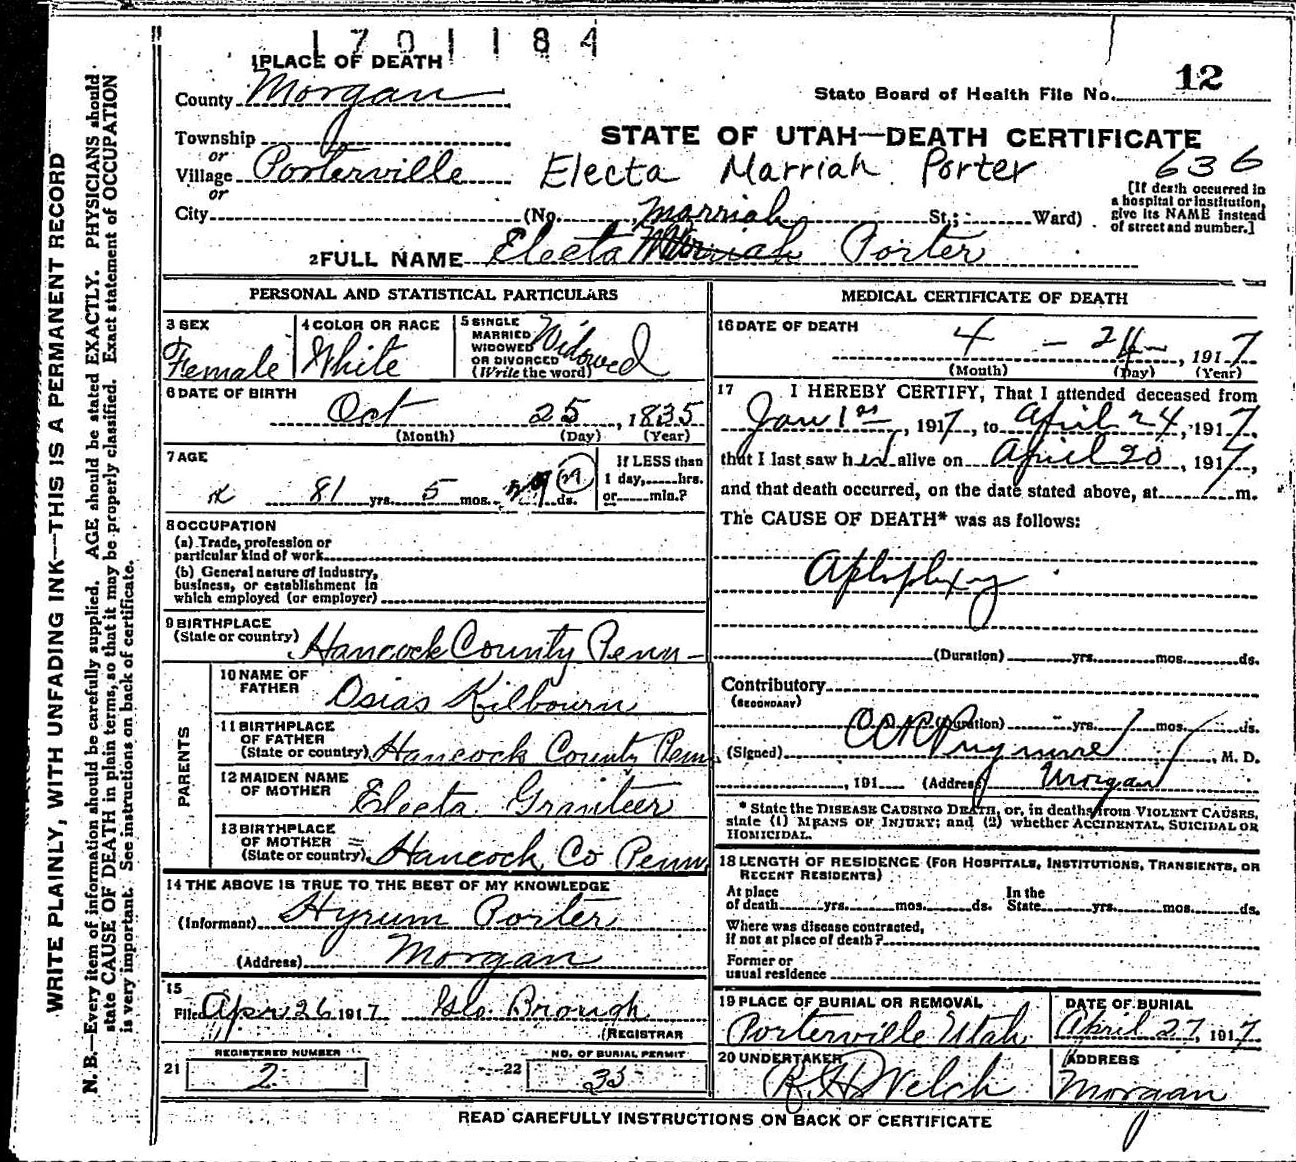 1701184
1 PLACE OF DEATH
12
County Morgan
State Board of Health File No.
Township
STATE OF UTAH—DEATH CERTIFICATE
or
Village Porterville
Electa Marriah Porter
636
or
City (No. St.; Ward)
[If death occurred in
a hospital or institution,
give its NAME instead
of street and number.]
Marriah
2 FULL NAME Electa Porter
PERSONAL AND STATISTICAL PARTICULARS
3 SEX
Female
4 COLOR OR RACE
White
5 SINGLE
MARRIED
WIDOWED
OR DIVORCED
(Write the word)
Widowed
6 DATE OF BIRTH
Oct 25, 1835
(Month) (Day) (Year)
7 AGE
81 yrs. 5 mos. 29 ds.
If LESS than
1 day, hrs.
or min.?
8 OCCUPATION
(a) Trade, profession or
particular kind of work
(b) General nature of industry,
business, or establishment in
which employed (or employer)
9 BIRTHPLACE
(State or country) Hancock County Penn
PARENTS
10 NAME OF
FATHER Osias Kilbourn
11 BIRTHPLACE
OF FATHER
(State or country) Hancock County Penn
12 MAIDEN NAME
OF MOTHER Electa Graniteer
13 BIRTHPLACE
OF MOTHER
(State or country) Hancock Co Penn
14 THE ABOVE IS TRUE TO THE BEST OF MY KNOWLEDGE
(Informant) Hyrum Porter
(Address) Morgan
15
Filed Apr 26 1917 Geo. Brough
REGISTRAR
REGISTERED NUMBER
21 2
NO. OF BURIAL PERMIT
22 33
MEDICAL CERTIFICATE OF DEATH
16 DATE OF DEATH
4 - 24 - , 1917
(Month) (Day) (Year)
17 I HEREBY CERTIFY, That I attended deceased from
Jan 1st, 1917, to April 24, 1917,
that I last saw her alive on April 20, 1917,
and that death occurred, on the date stated above, at m.
The CAUSE OF DEATH* was as follows:
Aploplexy
(Duration) yrs. mos. ds.
Contributory
(SECONDARY)
(Duration) yrs. mos. ds.
(Signed) M. D.
, 191 (Address) Morgan
* State the DISEASE CAUSING DEATH, or, in deaths from VIOLENT CAUSES,
state (1) MEANS OF INJURY; and (2) whether ACCIDENTAL, SUICIDAL OR
HOMICIDAL.
18 LENGTH OF RESIDENCE (FOR HOSPITALS, INSTITUTIONS, TRANSIENTS, OR
RECENT RESIDENTS)
At place
of death yrs. mos. ds.
In the
State yrs. mos. ds.
Where was disease contracted,
if not at place of death?
Former or
usual residence
19 PLACE OF BURIAL OR REMOVAL
Porterville Utah
DATE OF BURIAL
April 27, 1917
20 UNDERTAKER
Welch
ADDRESS
Morgan
READ CAREFULLY INSTRUCTIONS ON BACK OF CERTIFICATE
WRITE PLAINLY, WITH UNFADING INK—THIS IS A PERMANENT RECORD
N. B.—Every item of information should be carefully supplied. AGE should be stated EXACTLY. PHYSICIANS should
state CAUSE OF DEATH in plain terms, so that it may be properly classified. Exact statement of OCCUPATION
is very important. See instructions on back of certificate.